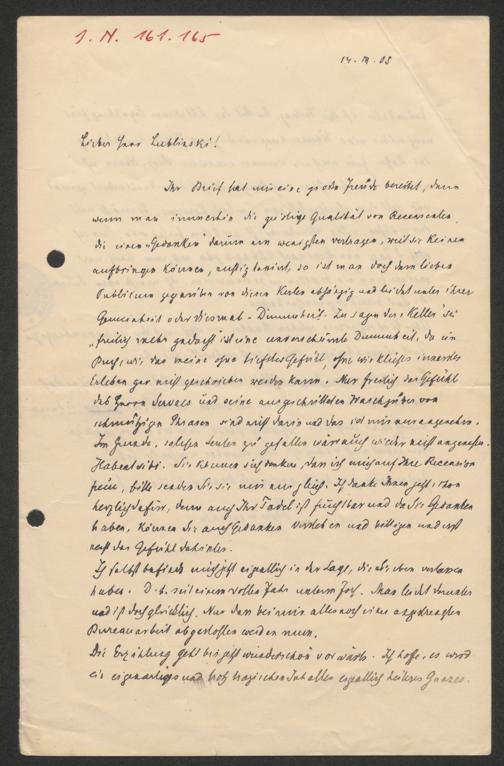 J. N. 161.165
14. III. 05
Lieber Herr Lublinski!
Ihr Brief hat mir eine große Freude bereitet, denn
wenn man immerhin die geistige Qualität von Recensenten,
die einem „Gedanken" darum am wenigsten vertragen, weil sie keinen
aufbringen können, richtig taxiert, so ist man doch dem lieben
Publicum gegenüber von diesen Kerlen abhängig und leidet unter ihrer
Gemeinheit oder diesmal - Dummheit. Zu sagen der „Keller" sei
„freilich mehr gedacht" ist eine unverschämte Dummheit, da ein
Buch, wie das meine ohne tiefstes Gefühl, ohne wirkliches inneres
Erleben gar nicht geschrieben werden kann. Nur freilich das Gefühl
des Herrn Servaes und seine ausgeschrittenen Waschzuber von
schmutzigen Phrasen sind nicht darin und das ist mir nur angenehm.
Im Grunde, solchen Leuten zu gefallen wär auch wieder nicht angenehm.
Habeat sibi. Sie können sich denken, dass ich mich auf Ihre Recension
freue, bitte senden Sie sie mir nur gleich. Ich danke Ihnen jetzt schon
herzlich dafür, denn auch Ihr Tadel ist fruchtbar und da Sie Gedanken
haben, können Sie auch Gedanken verstehen und billigen und erst
recht das Gefühl dahinter.
Ich selbst befinde mich jetzt eigentlich in der Lage, die Sie eben verlassen
haben. D. h. seit einem vollen Jahr unterm Joch. Man leidet darunter
und ist doch glücklich. Nur dass bei mir alles noch einer angestrengten
Bureauarbeit abgestohlen werden muss.
Die Erzählung geht bis jetzt wunderschön vorwärts. Ich hoffe, es wird
ein eigenartiges und trotz tragischen Inhaltes eigentlich heiteres Ganzes.